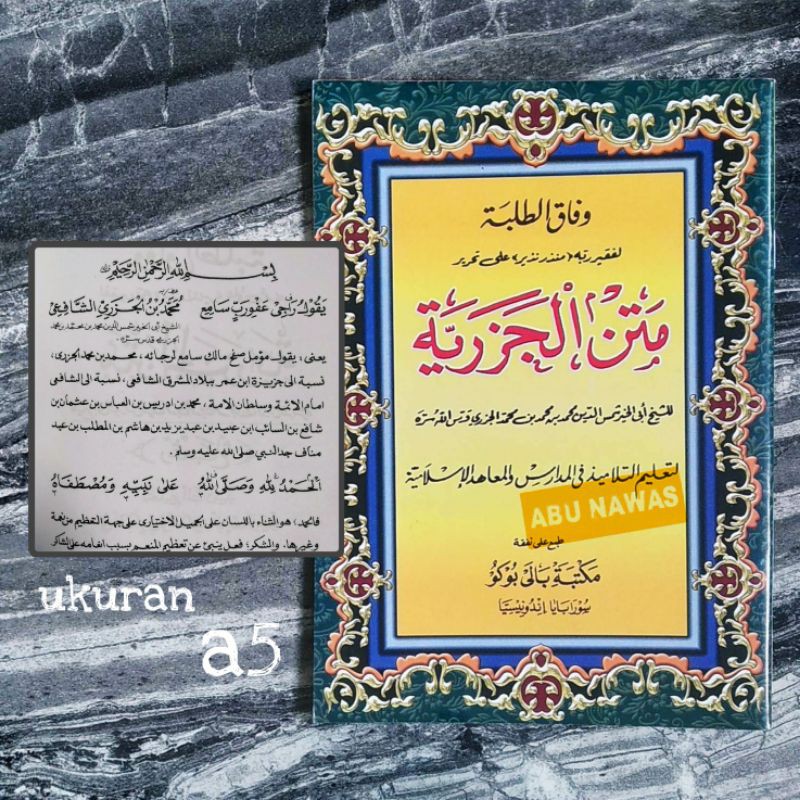 وفاق الطلبة
لفقير ربه (منذر نذير) على تحرير
متن الجزرية
للشيخ أبى الخير شمس الدين محمد بن محمد بن محمد الجزري قدس الله سره
لتعليم التلاميذ فى المدارس والمعاهد الإسلامية
ABU NAWAS
طبع على نفقة
مكتبة بالى بوكو
سورابايا إندونيسيا
بسم الله الرحمن الرحيم
يقول راجى عفو رب سامع محمد بن الجزري الشافعى
الشيخ أبى الخير شمس الدين محمد بن محمد بن محمد
الجزري قدس سره
يعنى، يقول مؤمل صفح مالك سامع لرجائه، محمد بن محمد الجزرى،
نسبة الى جزيرة ابن عمر ببلاد المشرق الشافعى، نسبة الى الشافعى
امام الائمة وسلطان الامة، محمد بن ادريس بن العباس بن عثمان بن
شافع بن السائب ابن عبيد بن عبد يزيد بن هاشم بن المطلب بن عبد
مناف جد النبي صلى الله عليه وسلم.
الحمد لله وصلى الله على نبيه ومصطفاه
فالحمد، هو الثناء باللسان على الجميل الاختيارى على جهة التعظيم من نعمة
وغيرها. والشكر؛ فعل ينبئ عن تعظيم المنعم بسبب انعامه على الشاكر
ukuran
a5